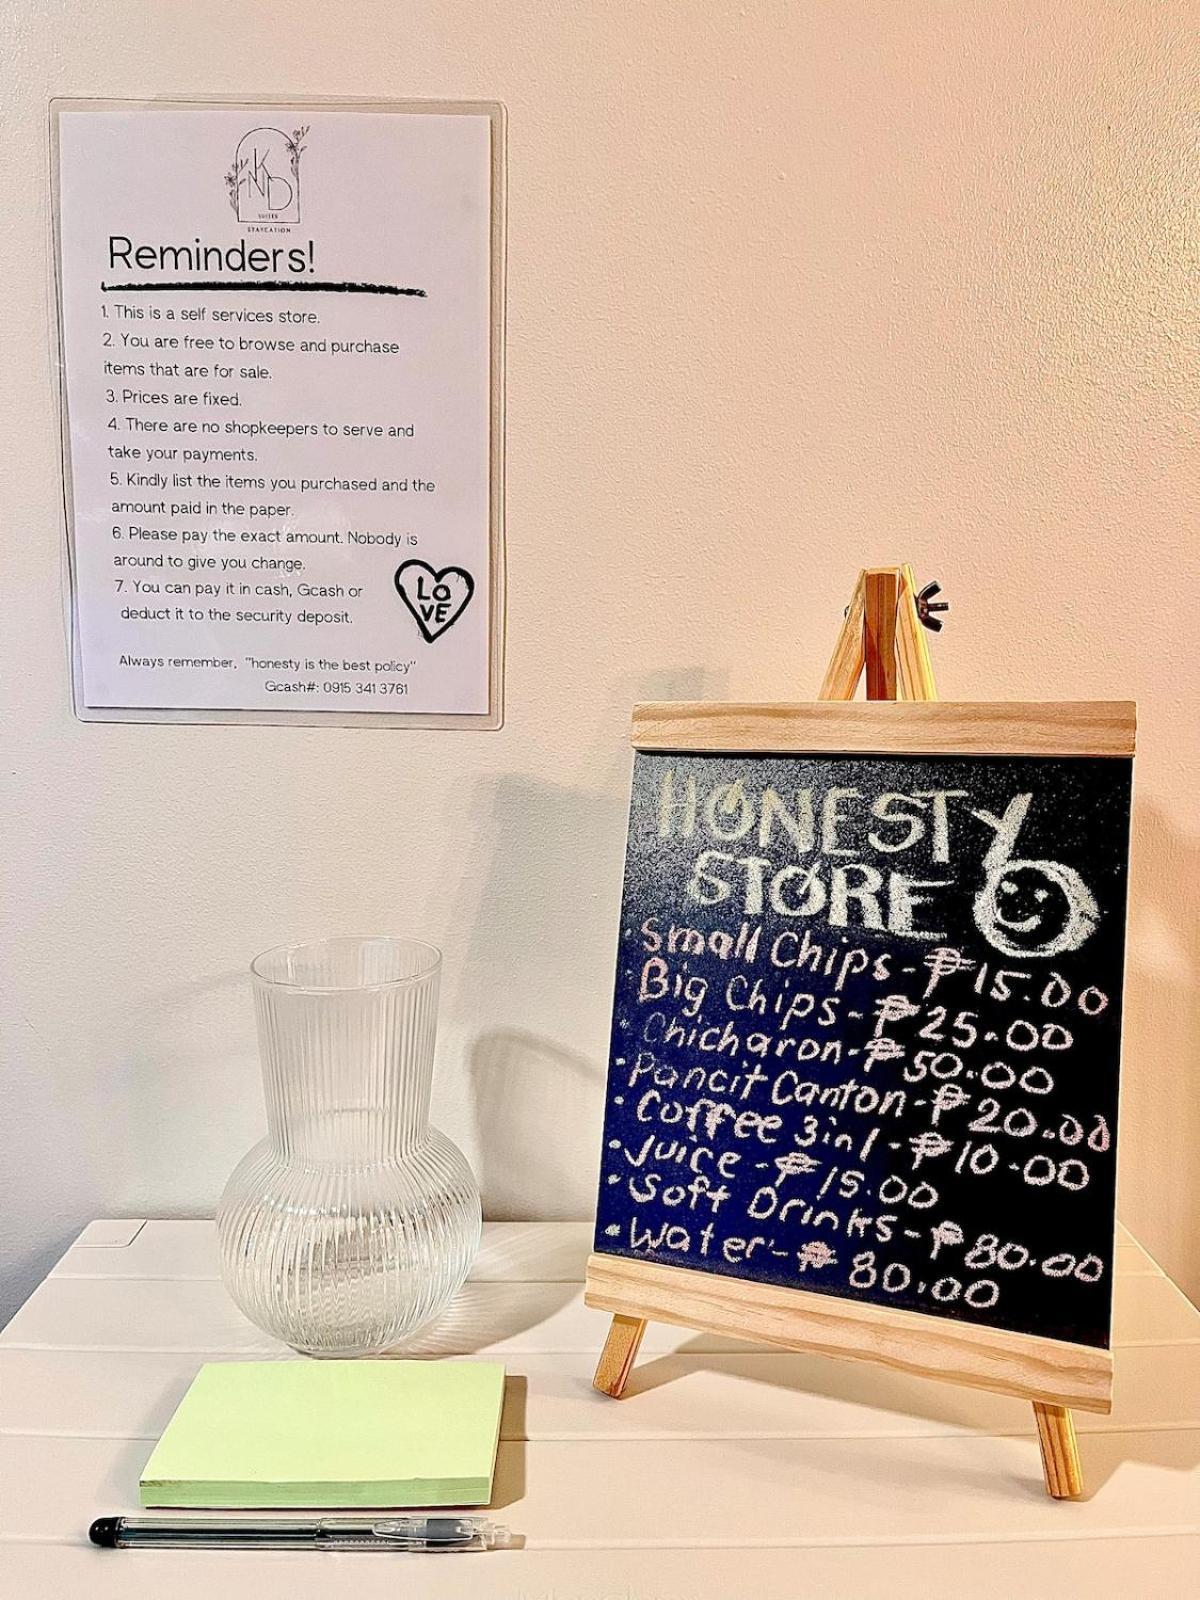 KND
SUITES
STAYCATION
Reminders!
1. This is a self services store.
2. You are free to browse and purchase
items that are for sale.
3. Prices are fixed.
4. There are no shopkeepers to serve and
take your payments.
5. Kindly list the items you purchased and the
amount paid in the paper.
6. Please pay the exact amount. Nobody is
around to give you change.
7. You can pay it in cash, Gcash or
deduct it to the security deposit.
LO
VE
Always remember, "honesty is the best policy"
Gcash#: 0915 341 3761
HONESTY
STORE
· Small Chips - ₱15.00
· Big Chips - ₱25.00
· Chicharon - ₱50.00
· Pancit Canton - ₱20.00
· Coffee 3in1 - ₱10.00
· Juice - ₱15.00
· Soft Drinks - ₱80.00
· Water - ₱80.00